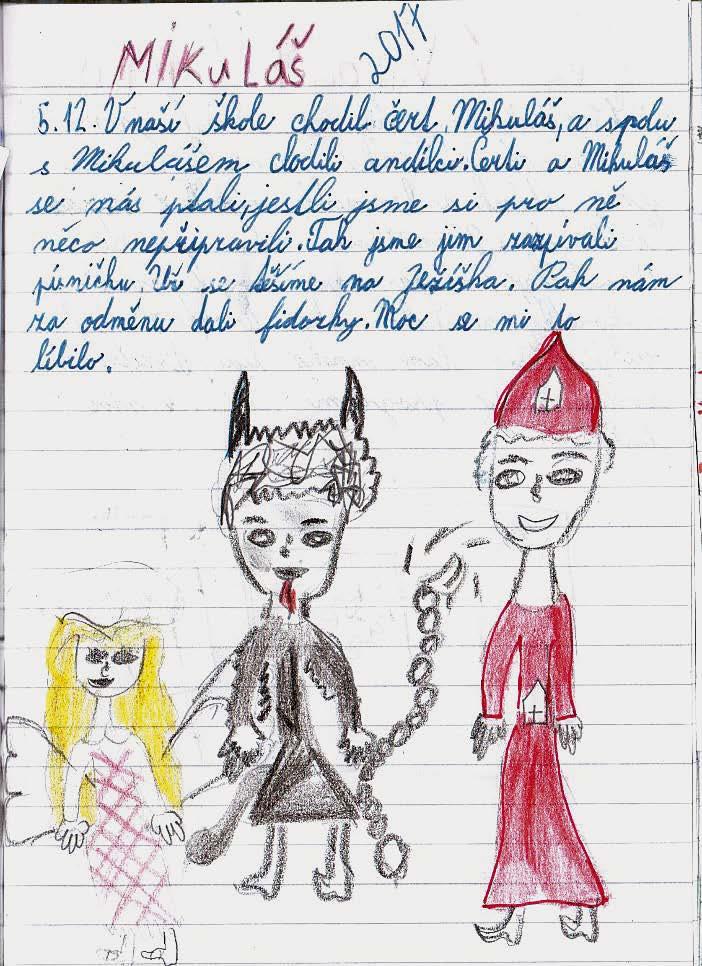 Mikuláš 2017
5.12. V naší škole chodil čert, Mikuláš, a spolu
s Mikulášem chodili andílci. Čerti a Mikuláš
se nás ptali, jestli jsme si pro ně
něco nepřipravili. Tak jsme jim zazpívali
písničku. Už se těšíme na Ježíška. Pak nám
za odměnu dali fidorky. Moc se mi to
líbilo.